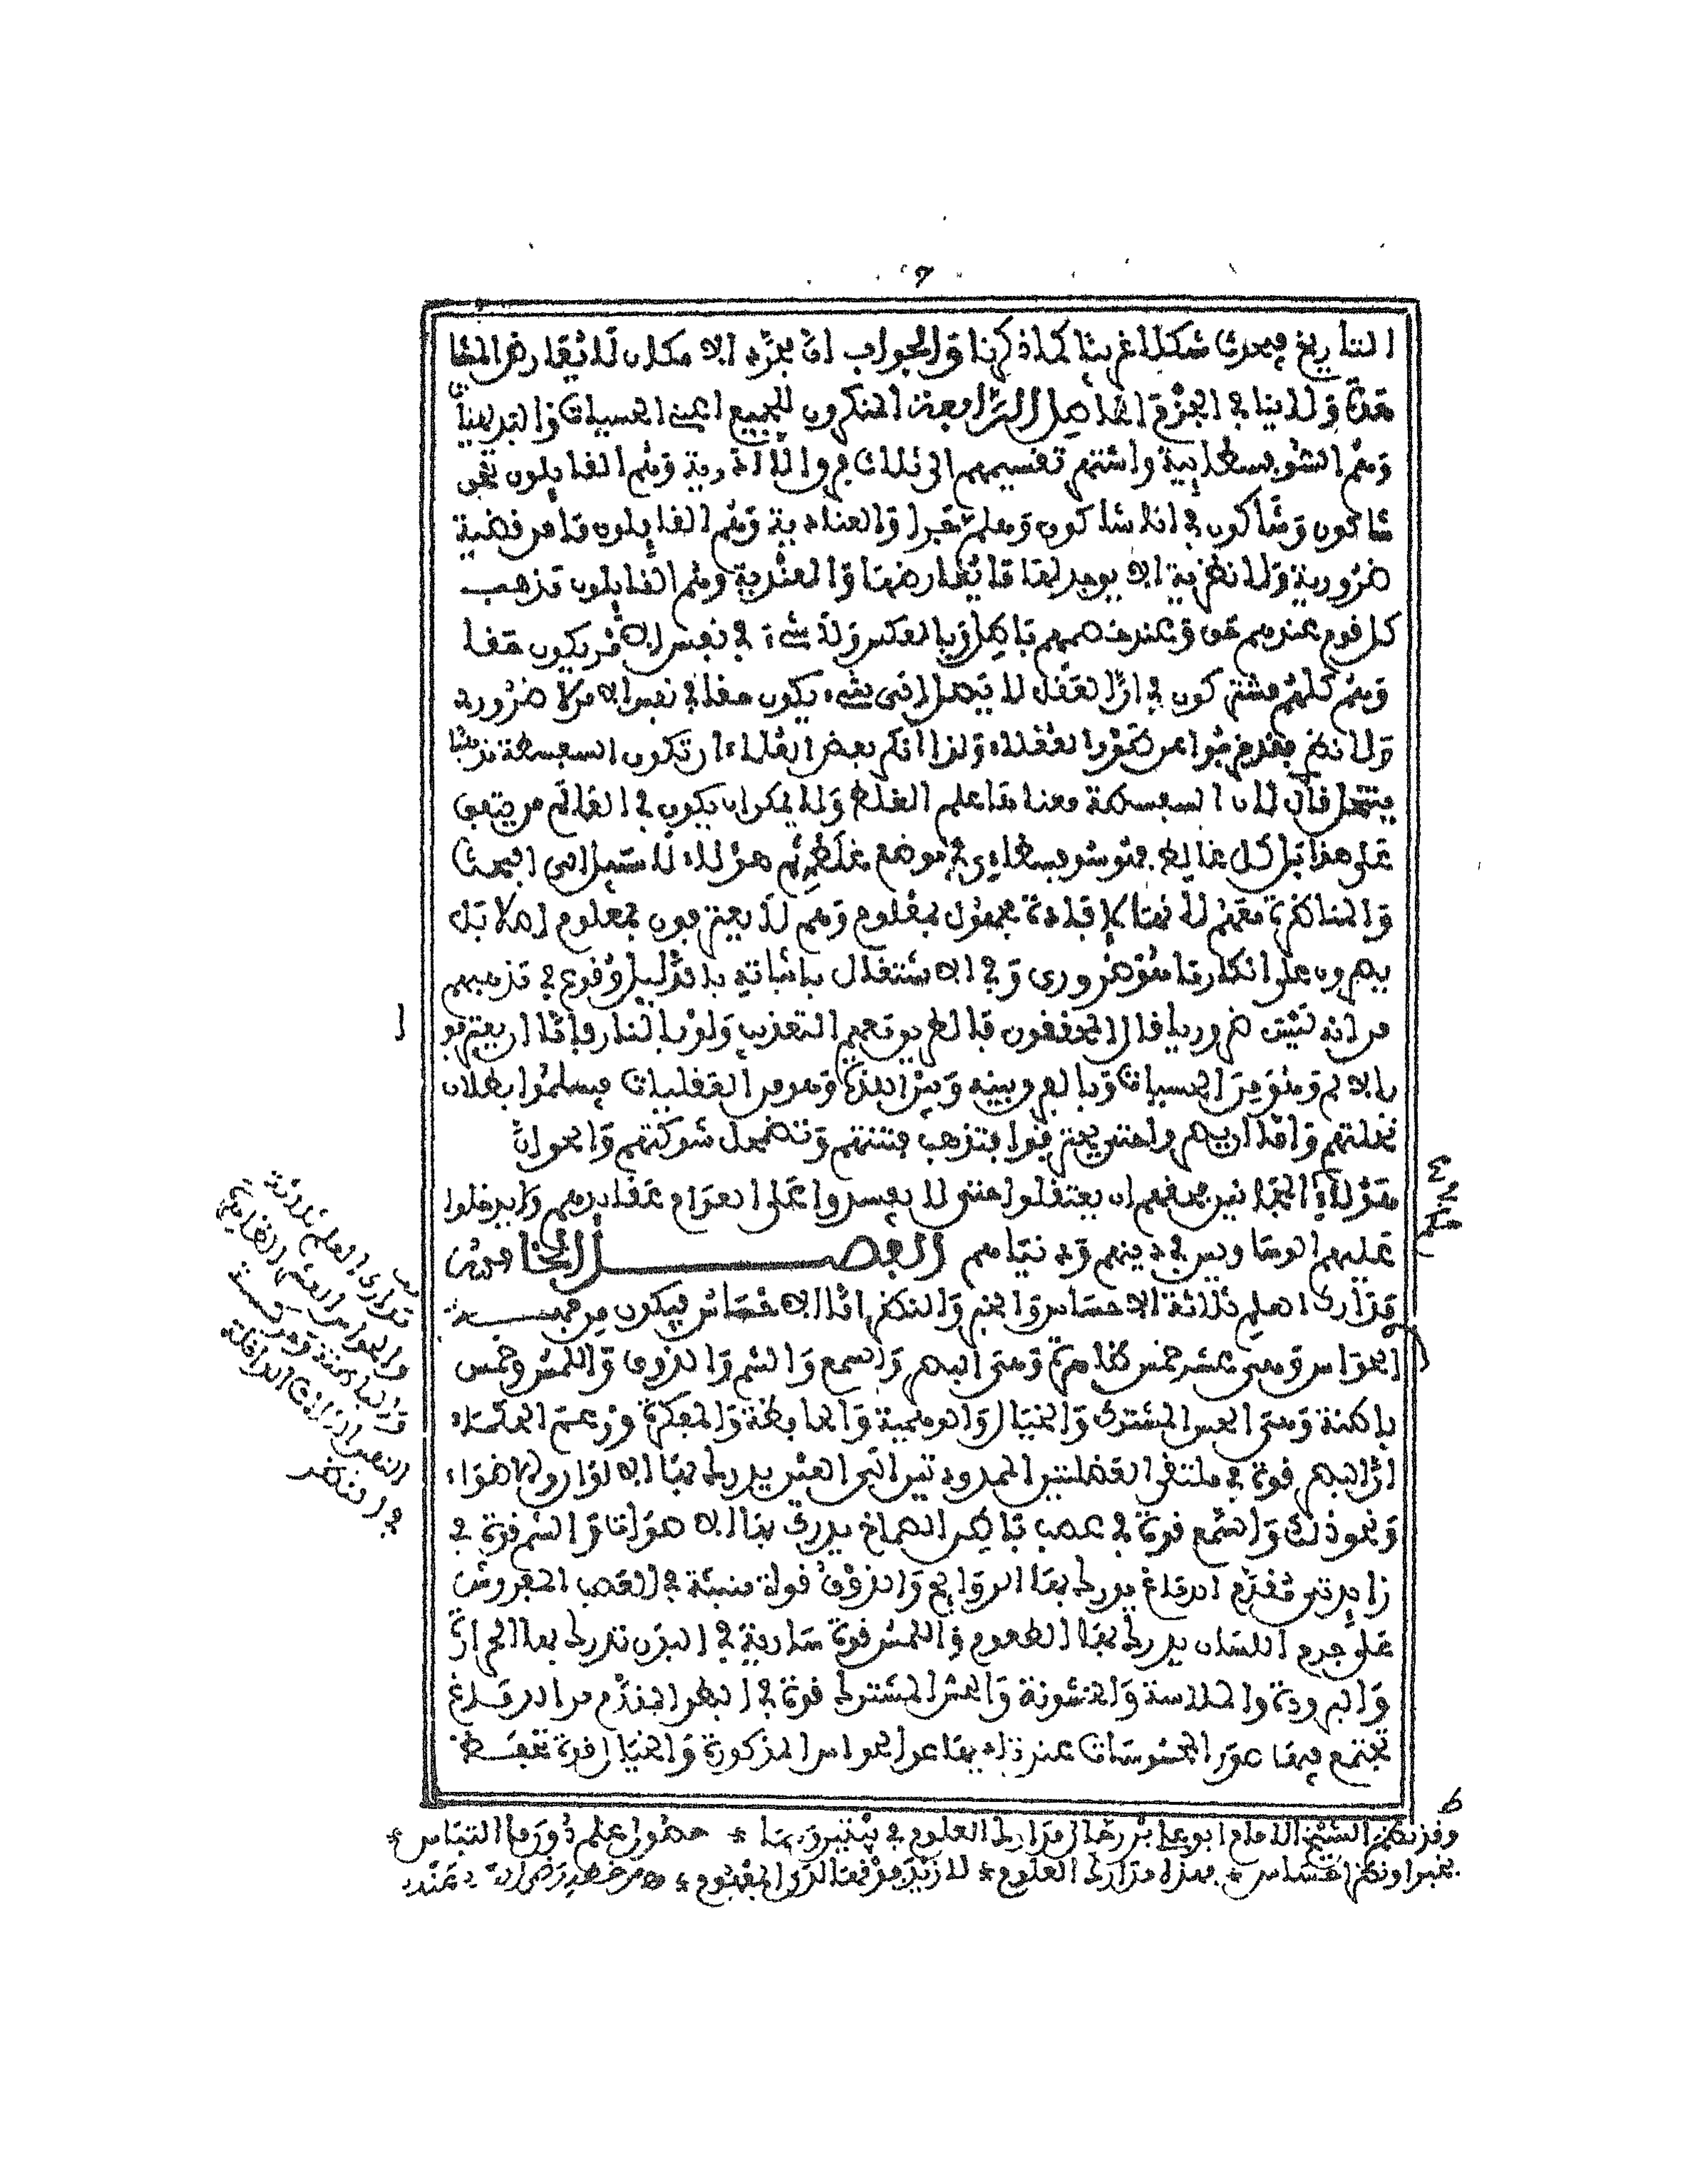 7
التاريخ فيحدث شكلا غريبا كما ذكرنا والجواب ان مجرد الامكان لا يعارض المشا
هدة ولا ينافي الجزم الحاصل الرابعة المنكرون للجميع اعني الحسيات والبديهيات
وهم السوفسطايية واشتهر تقسيمهم الى ثلاث فرق اللاادرية وهم القايلون نحن
شاكون وشاكون في انا شاكون وهلم جرا والعنادية وهم القايلون ما من قضية
ضرورية ولا نظرية الا يوجد لها ما يعارضها والعندية وهم القايلون مذهب
كل قوم عندهم حق وعند خصمهم باطل وبالعكس ولا شيء في نفس الامر يكون حقا
وهم كلهم مشتركون في ان العقل لا يصل الى شيء يكون حقا في نفس الامر لا ضرورة
ولا نظر فقد خرجوا عن طور العقلاء ولذا انكر بعض العقلاء ان تكون السفسطة مذهبا
ينتحل قال لان السفسطة معناها علم الغلط ولا يمكن ان يكون في العالم من يتفق
على هذا بل كل غالط فهو سوفسطاءي في موضع غلطه ثم هؤلاء لا سبيل الى البحث
والمناظرة معهم لانها لإفادة مجهول بمعلوم وهم لا يعترفون بمعلوم اصلا بل
يصرون على انكار ما هو ضروري وفي الاشتغال باثباته بالدليل وقوع في مذهبهم
من انه ليس ضروريا قال المحققون فالطريق معهم التعذيب ولو بالنار فإما ان يعترفو
بالالم وهو من الحسيات وبالفرق بينه وبين اللذة وهو من العقليات فيسلموا بطلان
نحلتهم واما ان يصروا حتى يحترقوا فتذهب فتنتهم وتضمحل شوكتهم والحق ان
هؤلاء المجانين حقهم ان يعتقلوا حتى لا يفسدوا على العوام عقايدهم ولا يدخلوا
عليهم الوساويس في دينهم ودنياهم الفصل الخامس
مدارك العلم ثلاثة الاحساس والخبر والنظر اما الاحساس فيكون من جهة
الحواس وهي عشر خمس ظاهرة وهي البصر والسمع والشم والذوق واللمس وخمس
باطنة وهي الحس المشترك والخيال والوهمية والحافظة والمفكرة وزعم الحكماء
ان البصر قوة في ملتقى العصبتين الممدودتين الى العين يدرك بها الالوان والاضواء
ونحو ذلك والسمع قوة في عصب باطن الصماخ يدرك بها الاصوات والشم قوة في
زايدتي مقدم الدماغ يدرك بها الروايح والذوق قوة منبثة في العصب المفروش
على جرم اللسان يدرك بها الطعوم واللمس قوة سارية في البدن تدرك بها الحرارة
والبرودة والملاسة والخشونة والحس المشترك قوة في البطن المقدم من الدماغ
تجتمع فيها صور المحسوسات عند ذهابها عن الحواس المذكورة والخيال قوة تحفظ
مدارك العلم ثلاثة
والحواس العشر الظاهرة
والباطنة
في النظر
وقد نظم الشيخ الامام ابو علي بن رحال مدارك العلوم في بيتين وهما * حصول علم دور ما التباس *
بخبر او نظر احساس * فهذه مدارك العلوم *